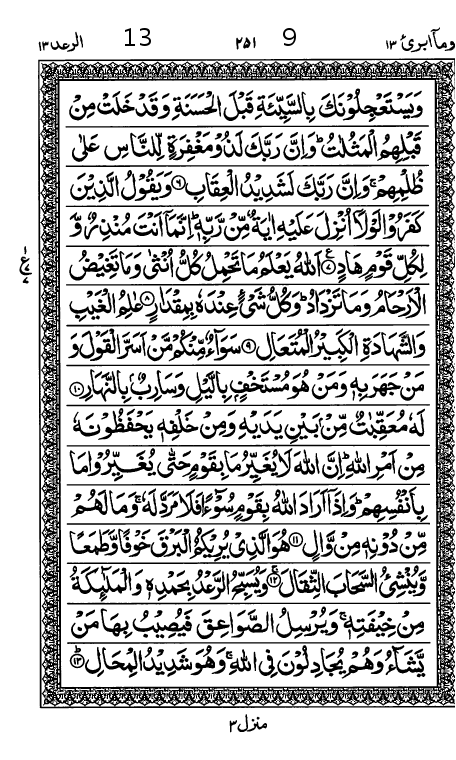 الرعد ١٣ 13 ٢٥١ 9 ومآ ابرئ ١٣
وَيَسْتَعْجِلُوْنَكَ بِالسَّيِّئَةِ قَبْلَ الْحَسَنَةِ وَقَدْ خَلَتْ مِنْ
قَبْلِهِمُ الْمَثُلٰتُ ؕ وَاِنَّ رَبَّكَ لَذُوْ مَغْفِرَةٍ لِّلنَّاسِ عَلٰى
ظُلْمِهِمْ ۚ وَاِنَّ رَبَّكَ لَشَدِيْدُ الْعِقَابِ ۝۶ وَيَقُوْلُ الَّذِيْنَ
كَفَرُوْا لَوْلَاۤ اُنْزِلَ عَلَيْهِ اٰيَةٌ مِّنْ رَّبِّهٖ ؕ اِنَّمَاۤ اَنْتَ مُنْذِرٌ وَّ
لِكُلِّ قَوْمٍ هَادٍ ۝۷ اَللّٰهُ يَعْلَمُ مَا تَحْمِلُ كُلُّ اُنْثٰى وَمَا تَغِيْضُ
الْاَرْحَامُ وَمَا تَزْدَادُ ؕ وَكُلُّ شَيْءٍ عِنْدَهٗ بِمِقْدَارٍ ۝۸ عٰلِمُ الْغَيْبِ
وَالشَّهَادَةِ الْكَبِيْرُ الْمُتَعَالِ ۝۹ سَوَآءٌ مِّنْكُمْ مَّنْ اَسَرَّ الْقَوْلَ وَ
مَنْ جَهَرَ بِهٖ وَمَنْ هُوَ مُسْتَخْفٍۭ بِالَّيْلِ وَسَارِبٌۢ بِالنَّهَارِ ۝۱۰
لَهٗ مُعَقِّبٰتٌ مِّنْۢ بَيْنِ يَدَيْهِ وَمِنْ خَلْفِهٖ يَحْفَظُوْنَهٗ
مِنْ اَمْرِ اللّٰهِ ؕ اِنَّ اللّٰهَ لَا يُغَيِّرُ مَا بِقَوْمٍ حَتّٰى يُغَيِّرُوْا مَا
بِاَنْفُسِهِمْ ؕ وَاِذَاۤ اَرَادَ اللّٰهُ بِقَوْمٍ سُوْٓءًا فَلَا مَرَدَّ لَهٗ ۚ وَمَا لَهُمْ
مِّنْ دُوْنِهٖ مِنْ وَّالٍ ۝۱۱ هُوَ الَّذِيْ يُرِيْكُمُ الْبَرْقَ خَوْفًا وَّطَمَعًا
وَّيُنْشِئُ السَّحَابَ الثِّقَالَ ۝۱۲ وَيُسَبِّحُ الرَّعْدُ بِحَمْدِهٖ وَالْمَلٰٓئِكَةُ
مِنْ خِيْفَتِهٖ ۚ وَيُرْسِلُ الصَّوَاعِقَ فَيُصِيْبُ بِهَا مَنْ
يَّشَآءُ وَهُمْ يُجَادِلُوْنَ فِى اللّٰهِ ۚ وَهُوَ شَدِيْدُ الْمِحَالِ ۝۱۳
منزل ٣